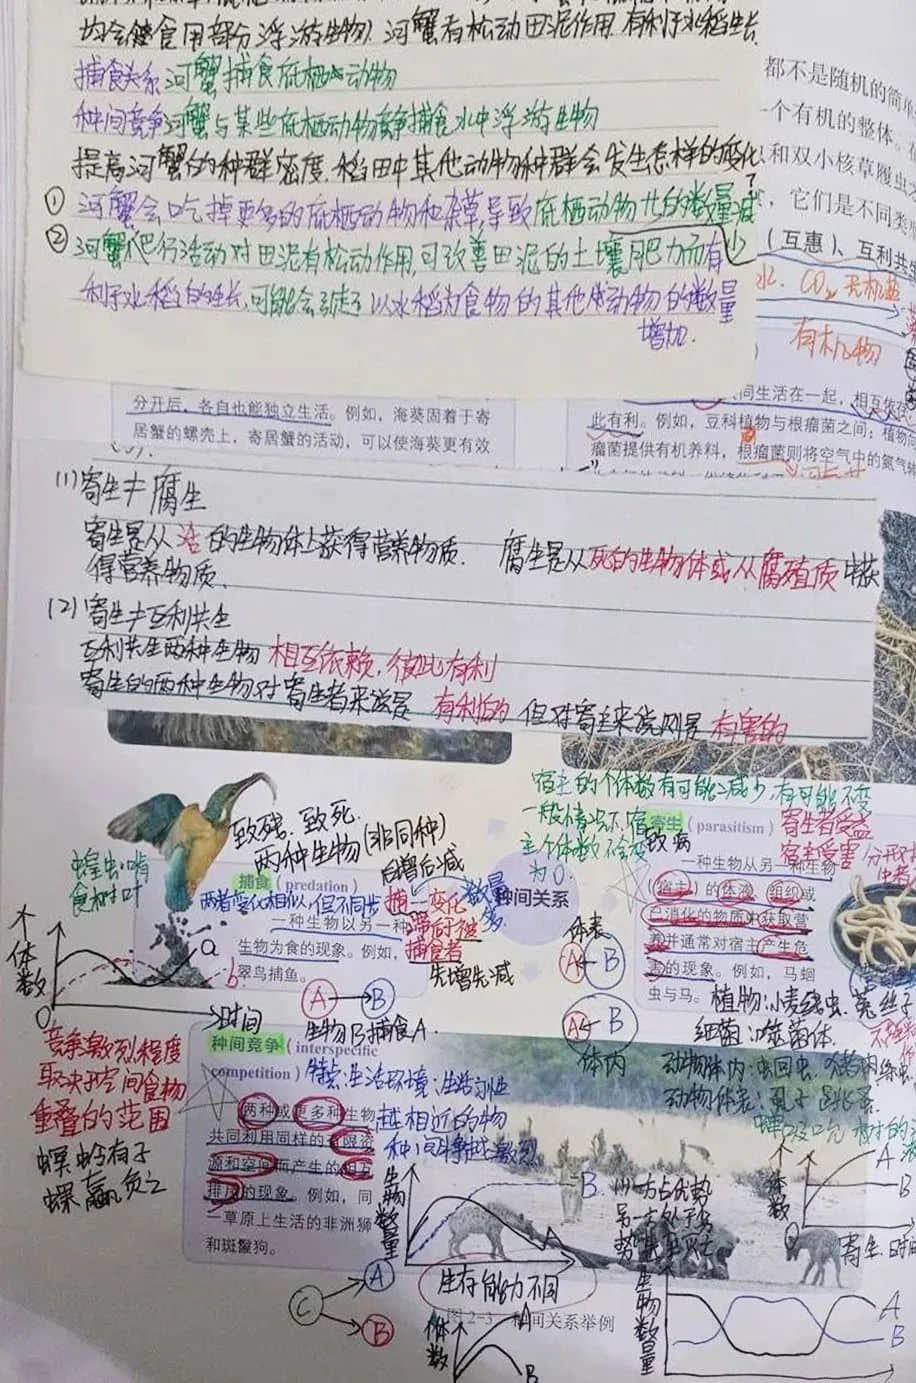 均会食用部分浮游生物) 河蟹有松动田泥作用,有利于水稻生长.
捕食关系 河蟹捕食底栖动物
种间竞争 河蟹与某些底栖动物竞争捕食水中浮游生物
提高河蟹的种群密度,稻田中其他动物种群会发生怎样的变化?
① 河蟹会吃掉更多的底栖动物和杂草,导致底栖动物 的数量减少
② 河蟹爬行活动对田泥有松动作用,可改善田泥的土壤肥力而有
利于水稻的生长,可能会引起了以水稻为食物的其他 动物的数量
增加.
都不是随机的简单
一个有机的整体。
和双小核草履虫
,它们是不同类
(互惠)、互利共
水、CO₂ 无机盐
有机物
分开后,各自也能独立生活。例如,海葵固着于寄
居蟹的螺壳上,寄居蟹的活动,可以使海葵更有效
同生活在一起,相互依存
此有利。例如,豆科植物与根瘤菌之间:植物
瘤菌提供有机养料,根瘤菌则将空气中的氮气
(1)寄生≠腐生
寄生是从活的生物体上获得营养物质. 腐生是从死的生物体或从腐殖质中获
得营养物质.
(2)寄生≠互利共生
互利共生两种生物 相互依赖,彼此有利
寄生的两种生物对寄生者来说是 有利的 但对寄主来说则是 有害的
宿主的个体数有可能减少,有可能不变
一般情况下,宿
主个体数不会变
为0.
致残、致死.
两种生物(非同种)
蝗虫啃
食树叶
捕食 (predation)
两者变化相似,但不同步
一种生物以另一种
生物为食的现象。例如,
翠鸟捕鱼。
捕食者
先增先减
A→B
生物B捕食A.
个体数
a
b
O
时间
种间关系
体表
A B
A B
体内
寄生 (parasitism)
致病
寄生者受益
宿主受害
一种生物从另一种生物
(宿主)的体液、组织或
已消化的物质中获取营
养并通常对宿主产生危
害的现象。例如,马蛔
虫与马。
植物:小麦线虫、菟丝子
细菌:噬菌体.
动物体内:蛔虫、猪肉绦虫
动物体表:虱子 跳蚤
竞争激烈程度
取决于空间食物
重叠的范围
螟蛉有子
蜾蠃负之
种间竞争 (interspecific
competition)
特点:生活环境:生活习性
越相近的物
种间斗争越激烈
两种或更多种生物
共同利用同样的有限资
源和空间而产生的相互
排斥的现象。例如,同
一草原上生活的非洲狮
和斑鬣狗。
生物数量
B
A
生存能力不同
一方占优势
C
A
B
图2-3 种间关系举例
个体数
A
B
生物数量
A
B
个体数
A
B
O
寄生 时间